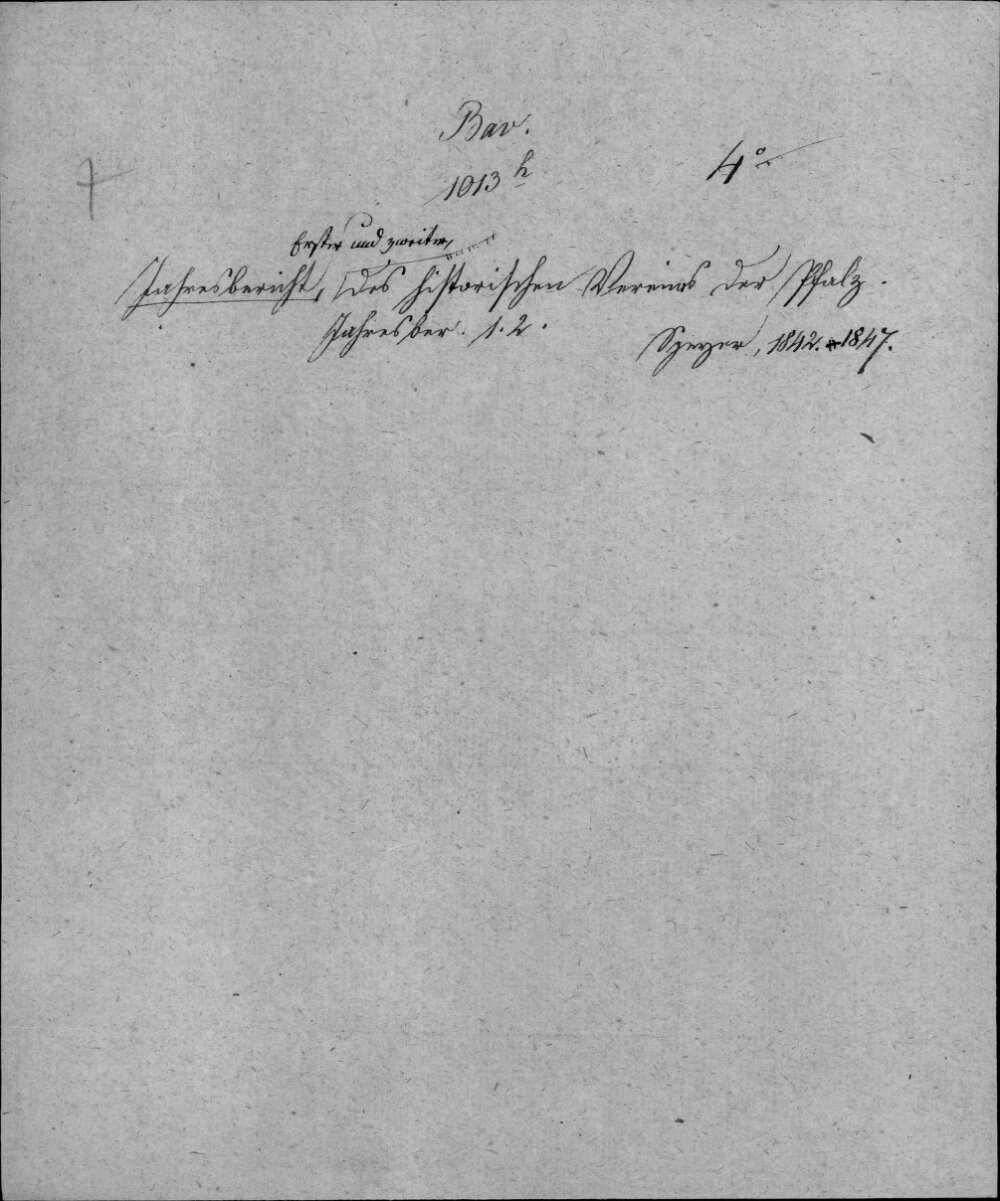 Bav.
1013 h
4°.
Erster und zweiter,
Jahresbericht, des historischen Vereines der Pfalz.
Jahresber. 1. 2.
Speyer, 1842. 1847.